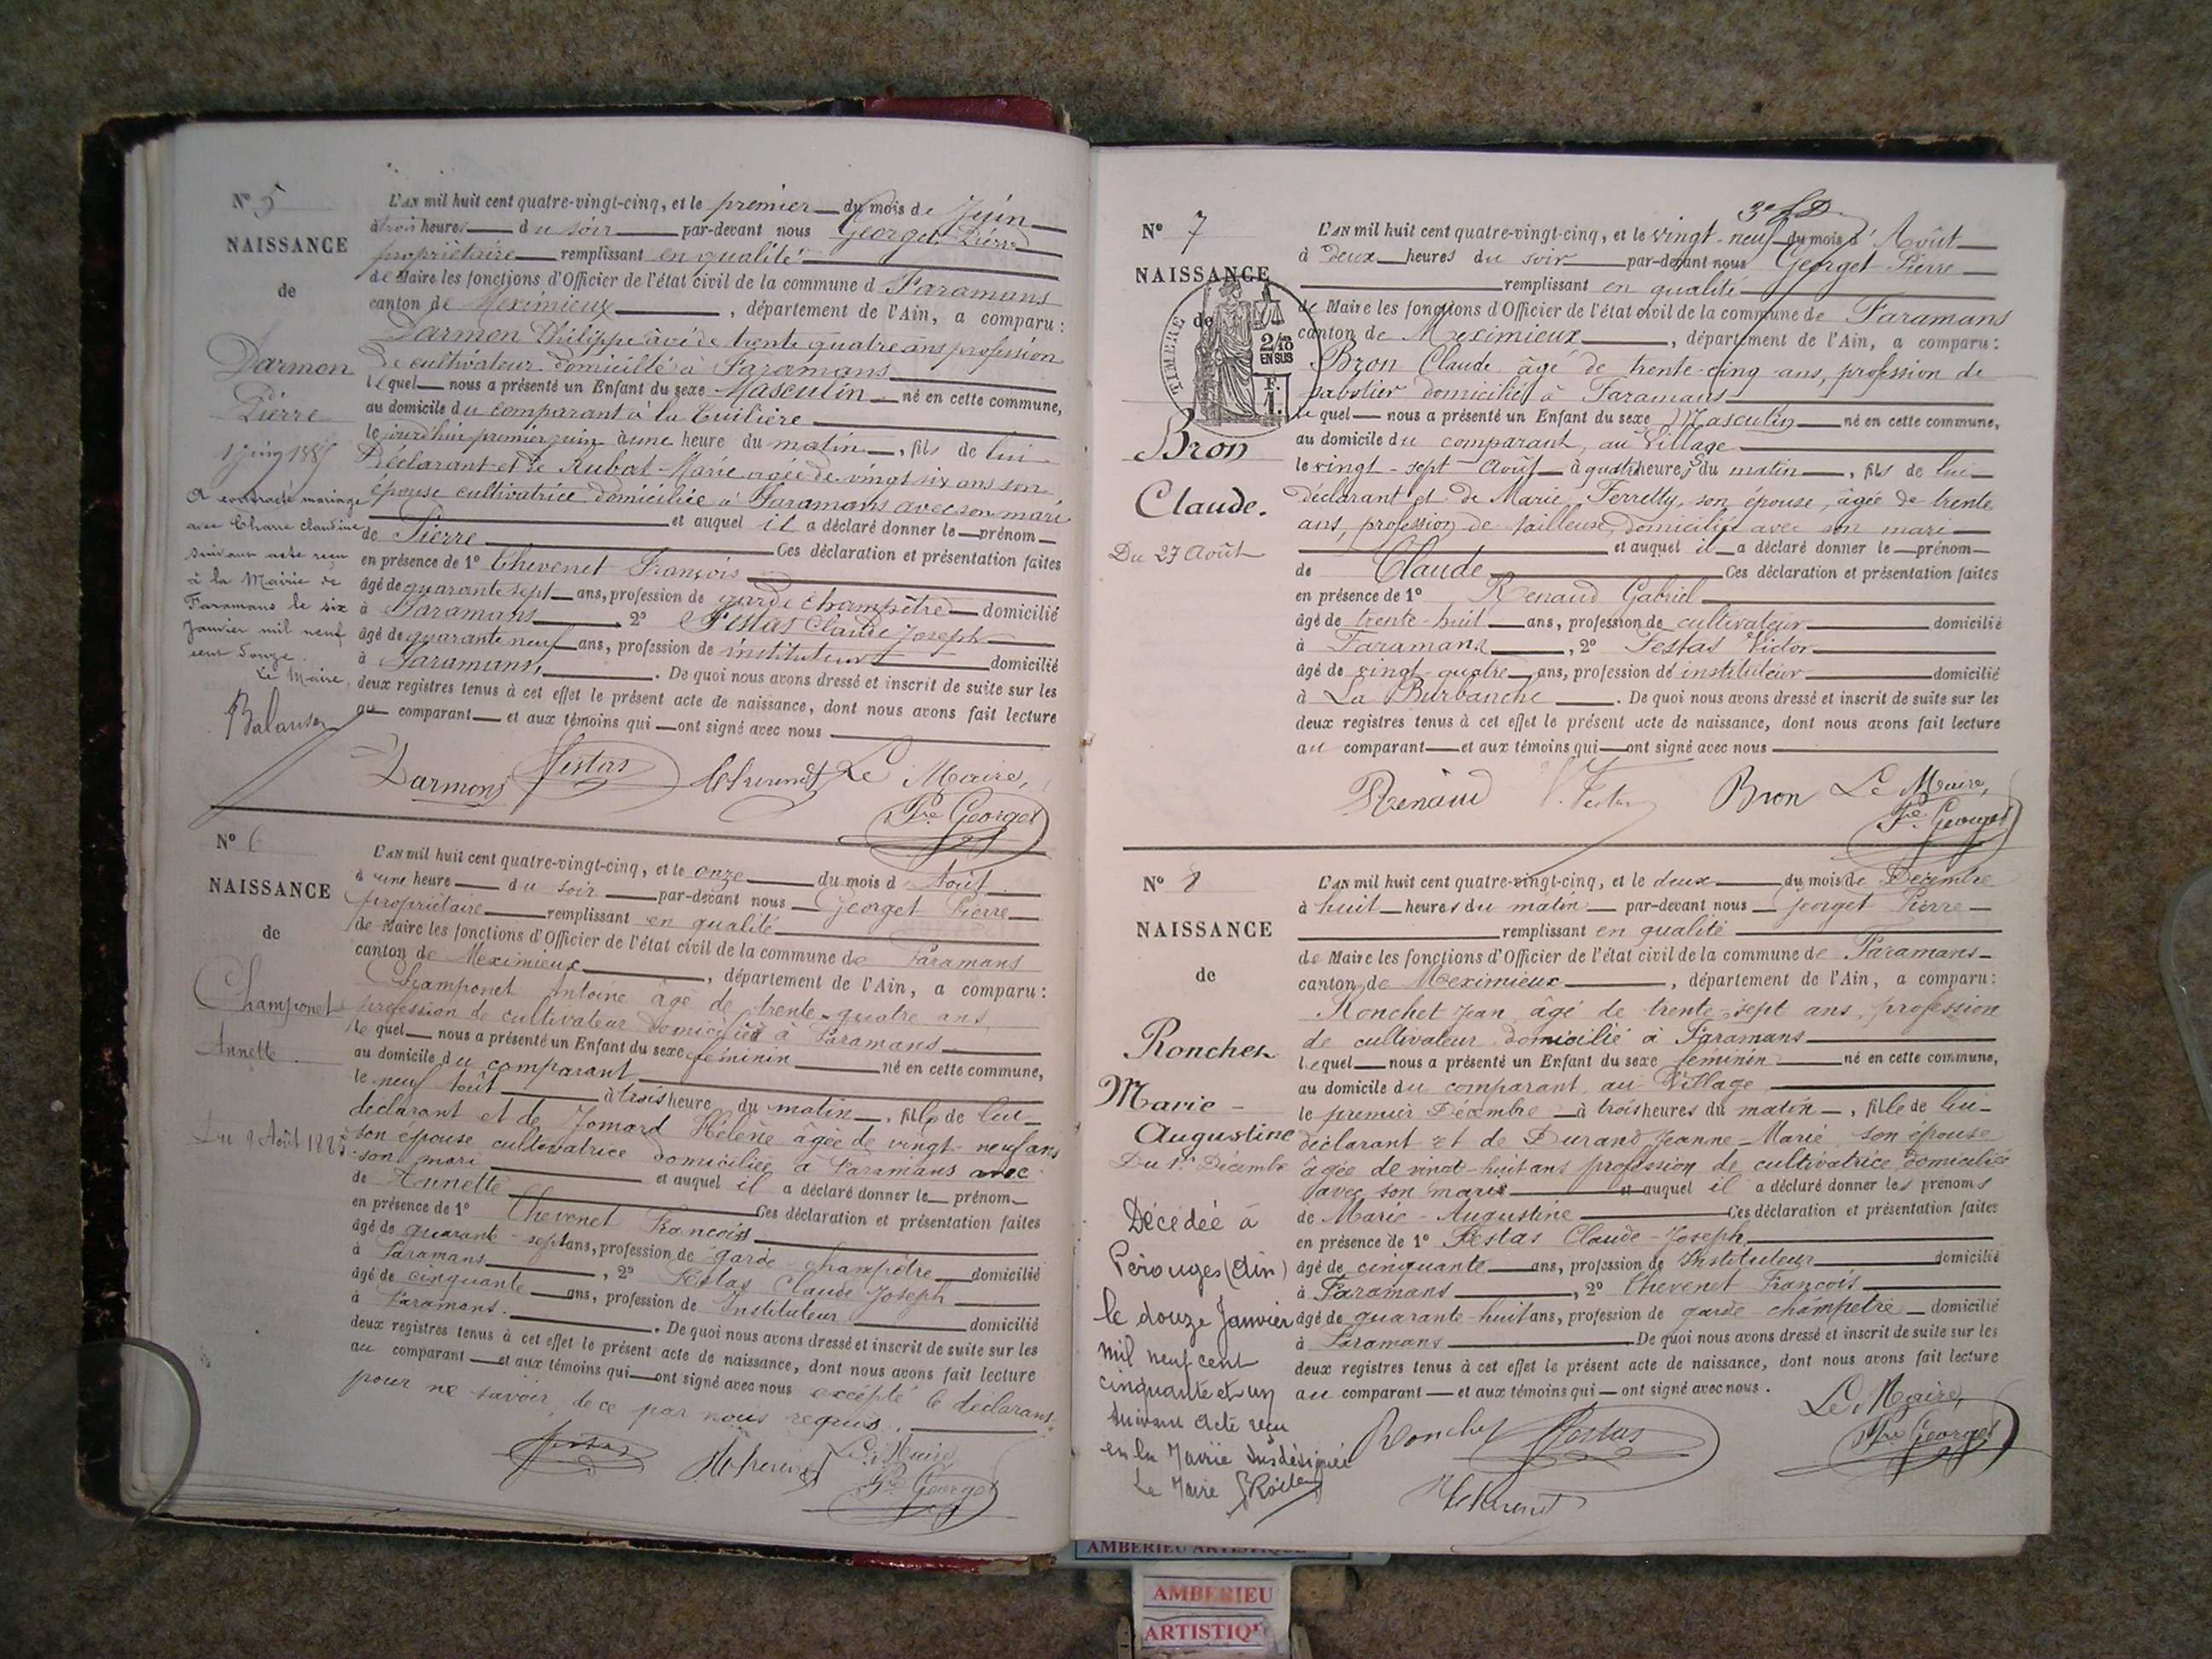 N° 5
NAISSANCE
de
Darmon
Pierre
1 juin 1885
A contracté mariage
avec Charre claudine
suivant acte reçu
à la Mairie de
Faramans le six
Janvier mil neuf
cent douze.
Le Maire,
L'AN mil huit cent quatre-vingt-cinq, et le premier du mois de Juin
à trois heures du soir par-devant nous Georget Pierre
propriétaire remplissant en qualité
de Maire les fonctions d'Officier de l'état civil de la commune d Faramans
canton de Meximieux, département de l'Ain, a comparu :
Darmon Philippe âgé de trente quatre ans profession
de cultivateur domicilié à Faramans
lequel nous a présenté un Enfant du sexe Masculin né en cette commune,
au domicile du comparant à la Tuilière
le jourd'hui premier juin à une heure du matin, fils de lui
Déclarant et de Rubat Marie agée de vingt six ans son
épouse cultivatrice domiciliée à Faramans avec son mari
et auquel il a déclaré donner le prénom
de Pierre Ces déclaration et présentation faites
en présence de 1° Chevenet François
âgé de quarante sept ans, profession de garde champêtre domicilié
à Faramans 2° Festas Claude Joseph
âgé de quarante neuf ans, profession de instituteur domicilié
à Faramans. De quoi nous avons dressé et inscrit de suite sur les
deux registres tenus à cet effet le présent acte de naissance, dont nous avons fait lecture
au comparant et aux témoins qui ont signé avec nous
Darmons Festas Chevenet Le Maire,
Pre Georget
N° 6
NAISSANCE
de
Champonet
Annette
Du 9 Août 1885
L'AN mil huit cent quatre-vingt-cinq, et le onze du mois d Août
à une heure du soir par-devant nous Georget Pierre
propriétaire remplissant en qualité
de Maire les fonctions d'Officier de l'état civil de la commune de Faramans
canton de Meximieux, département de l'Ain, a comparu :
Champonet Antoine âgé de trente-quatre ans,
profession de cultivateur domicilié à Faramans
lequel nous a présenté un Enfant du sexe féminin né en cette commune,
au domicile du comparant
le neuf Août à trois heure du matin, fille de lui
déclarant et de Jomard Hélène âgée de vingt-neuf ans
son épouse cultivatrice domiciliée à Faramans avec
son mari et auquel il a déclaré donner le prénom
de Annette Ces déclaration et présentation faites
en présence de 1° Chevenet François
âgé de quarante-sept ans, profession de garde champêtre domicilié
à Faramans, 2° Festas Claude Joseph
âgé de cinquante ans, profession de Instituteur domicilié
à Faramans. De quoi nous avons dressé et inscrit de suite sur les
deux registres tenus à cet effet le présent acte de naissance, dont nous avons fait lecture
au comparant et aux témoins qui ont signé avec nous excépté le déclarant
pour ne savoir, de ce par nous requis.
Festas Chevenet Le Maire,
Pre Georget
3e
N° 7
NAISSANCE
de
TIMBRE
2/10
EN SUS
F.
1.
Bron
Claude.
Du 27 Août
L'AN mil huit cent quatre-vingt-cinq, et le vingt-neuf du mois d' Août
à deux heures du soir par-devant nous Georget Pierre
remplissant en qualité
de Maire les fonctions d'Officier de l'état civil de la commune de Faramans
canton de Meximieux, département de l'Ain, a comparu :
Bron Claude âgé de trente-cinq ans, profession de
sabotier domicilié à Faramans
lequel nous a présenté un Enfant du sexe Masculin né en cette commune,
au domicile du comparant, au Village
le vingt-sept Août à quatre heures du matin, fils de lui
déclarant et de Marie Ferretty, son épouse, âgée de trente
ans, profession de tailleuse, domiciliée avec son mari
et auquel il a déclaré donner le prénom
de Claude Ces déclaration et présentation faites
en présence de 1° Renaud Gabriel
âgé de trente-huit ans, profession de cultivateur domicilié
à Faramans, 2° Festas Victor
âgé de vingt-quatre ans, profession de instituteur domicilié
à La Burbanche. De quoi nous avons dressé et inscrit de suite sur les
deux registres tenus à cet effet le présent acte de naissance, dont nous avons fait lecture
au comparant et aux témoins qui ont signé avec nous
Renaud V. Festas Bron Le Maire,
Pre Georget
N° 8
NAISSANCE
de
Ronchet
Marie-
Augustine
Du 1er Décembre
Décédée à
Pérouges (Ain)
le douze Janvier
mil neuf cent
cinquante et un
suivant acte reçu
en la Mairie susdésignée
Le Maire
L'AN mil huit cent quatre-vingt-cinq, et le deux du mois de Décembre
à huit heures du matin par-devant nous Georget Pierre
remplissant en qualité
de Maire les fonctions d'Officier de l'état civil de la commune de Faramans
canton de Meximieux, département de l'Ain, a comparu :
Ronchet Jean âgé de trente-sept ans, profession
de cultivateur domicilié à Faramans
lequel nous a présenté un Enfant du sexe féminin né en cette commune,
au domicile du comparant, au Village
le premier Décembre à trois heures du matin, fille de lui
déclarant et de Durand Jeanne-Marie son épouse
âgée de vingt-huit ans profession de cultivatrice domiciliée
avec son mari et auquel il a déclaré donner les prénoms
de Marie-Augustine Ces déclaration et présentation faites
en présence de 1° Festas Claude-Joseph
âgé de cinquante ans, profession de Instituteur domicilié
à Faramans, 2° Chevenet François
âgé de quarante-huit ans, profession de garde-champêtre domicilié
à Faramans De quoi nous avons dressé et inscrit de suite sur les
deux registres tenus à cet effet le présent acte de naissance, dont nous avons fait lecture
au comparant et aux témoins qui ont signé avec nous.
Le Maire,
Ronchet Festas Pre Georget
Chevenet
AMBERIEU ARTISTIQUE
AMBERIEU
ARTISTIQ